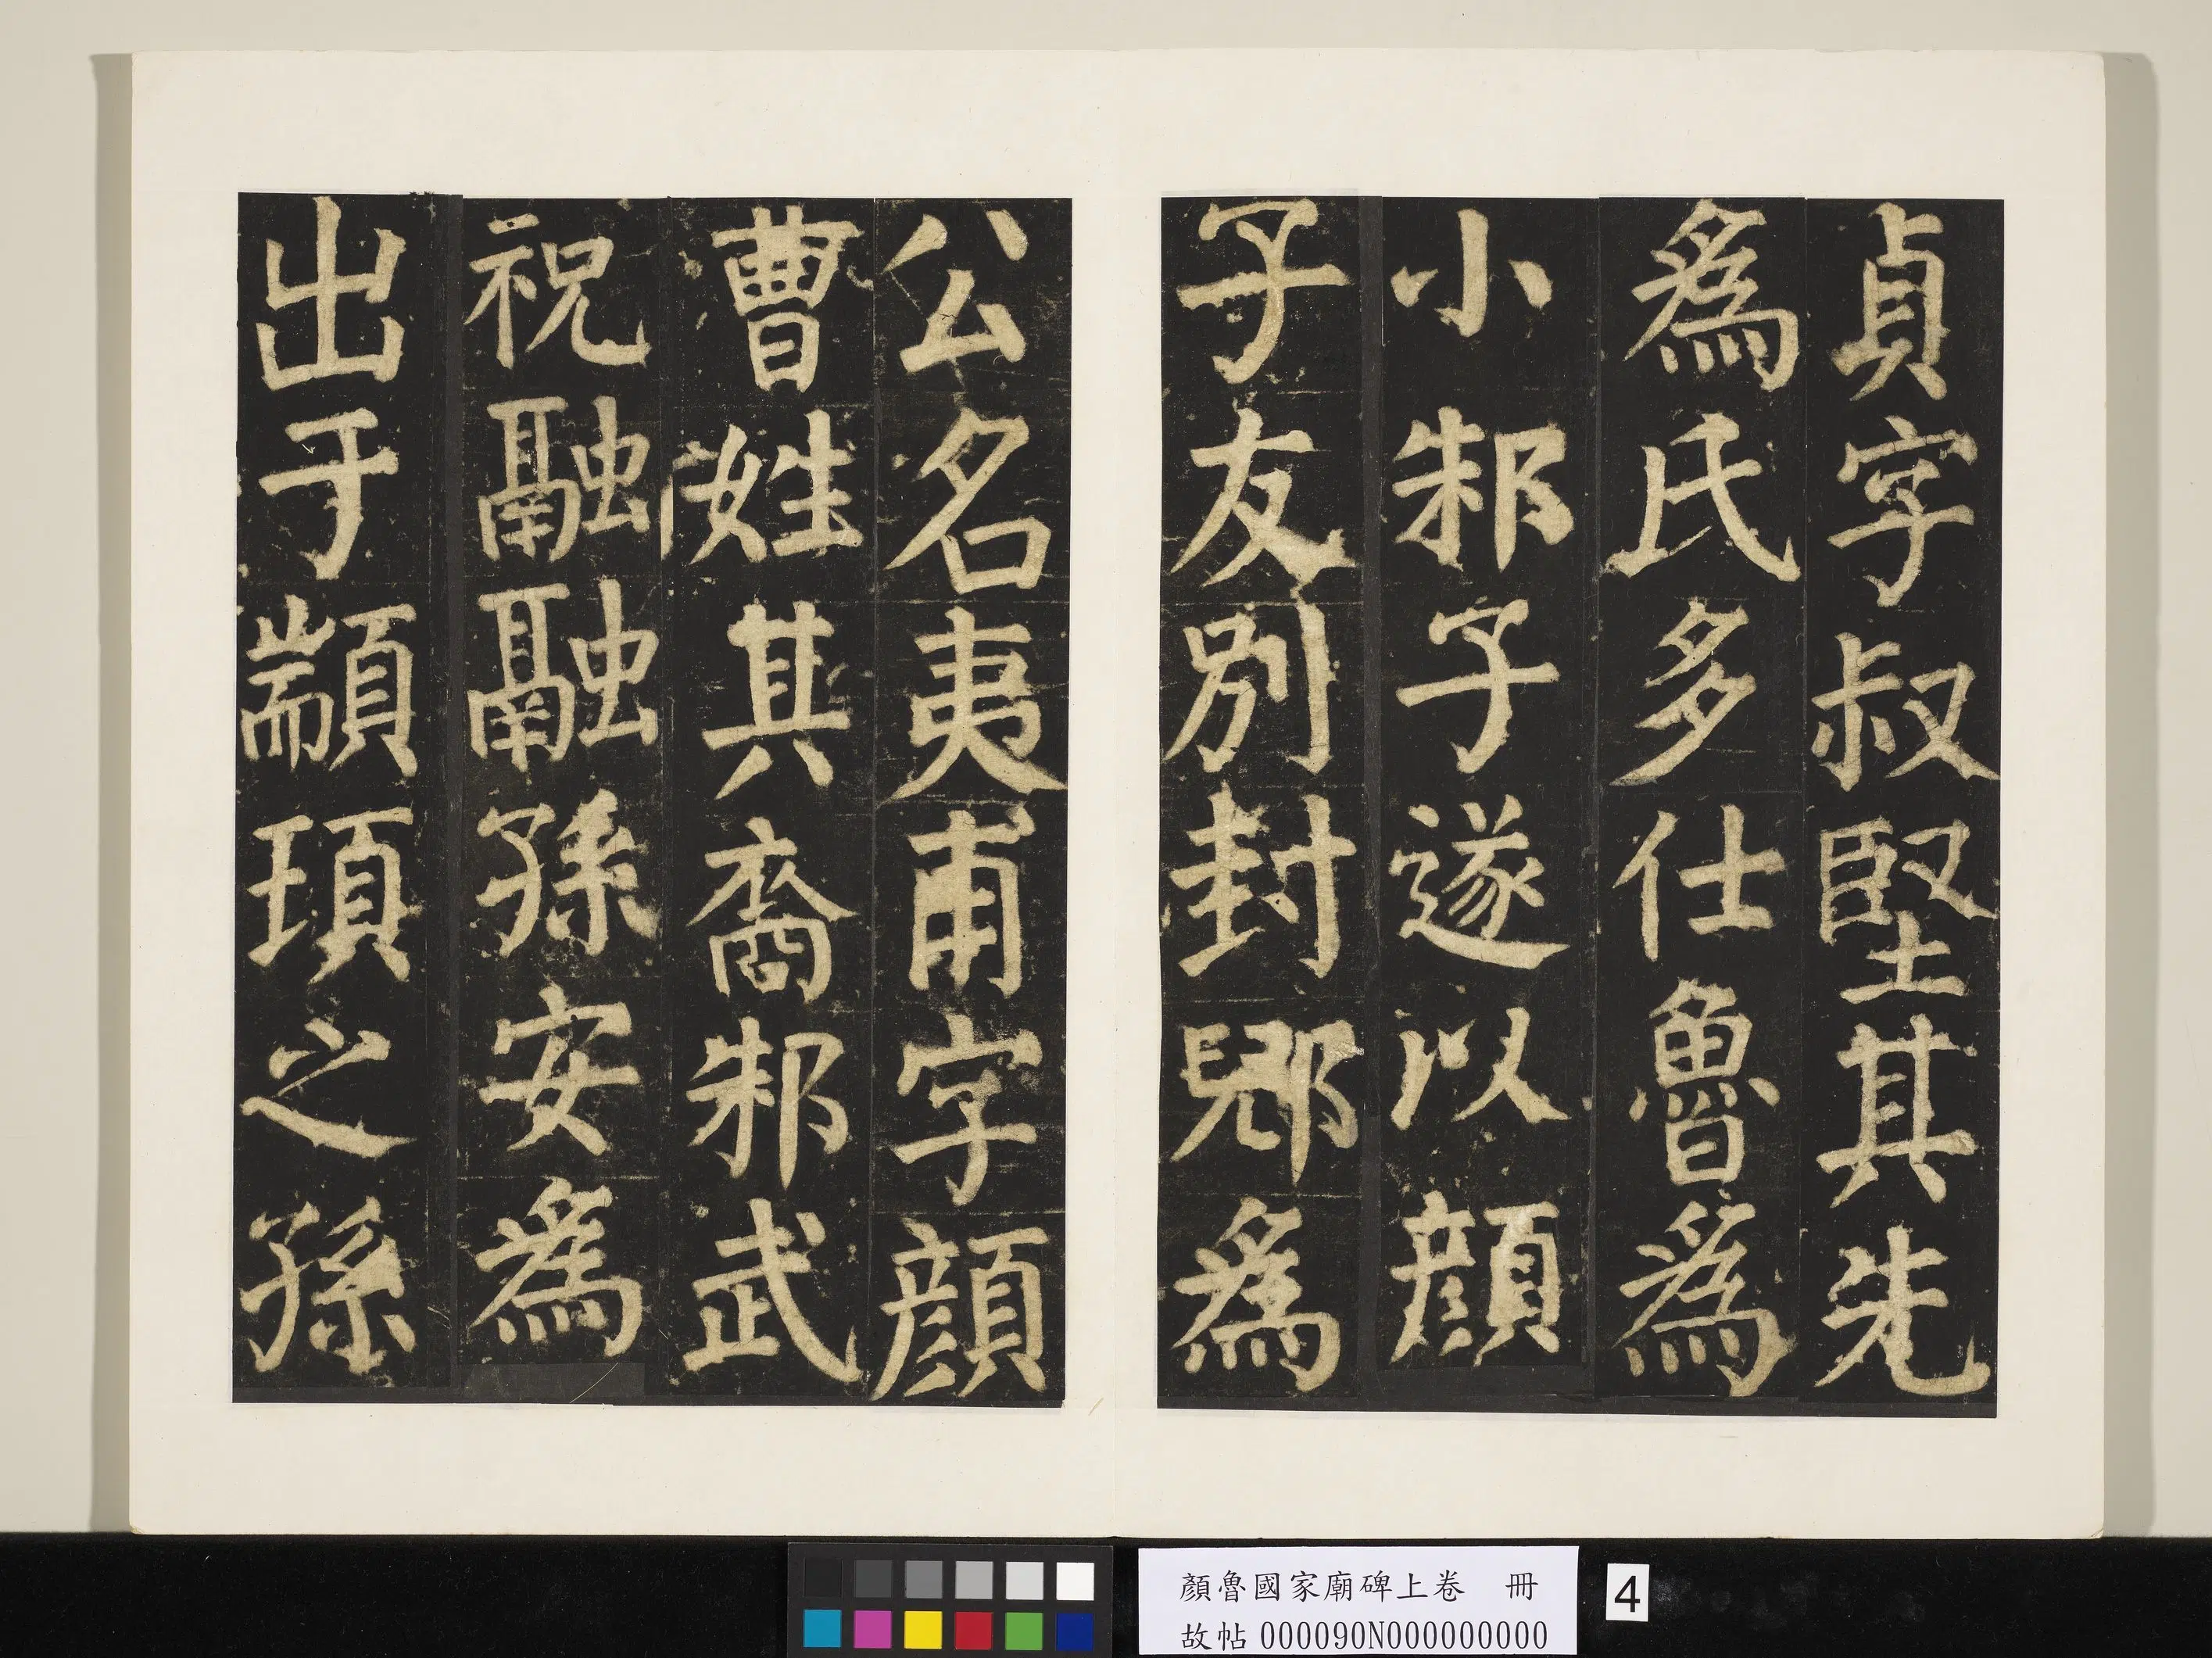 貞字叔堅其先
爲氏多仕魯爲
小邾子遂以顔
子友別封郳爲
公名夷甫字顔
曹姓其裔邾武
祝融融孫安爲
出于顓頊之孫
顏魯國家廟碑上卷 冊
故帖 000090N000000000
4